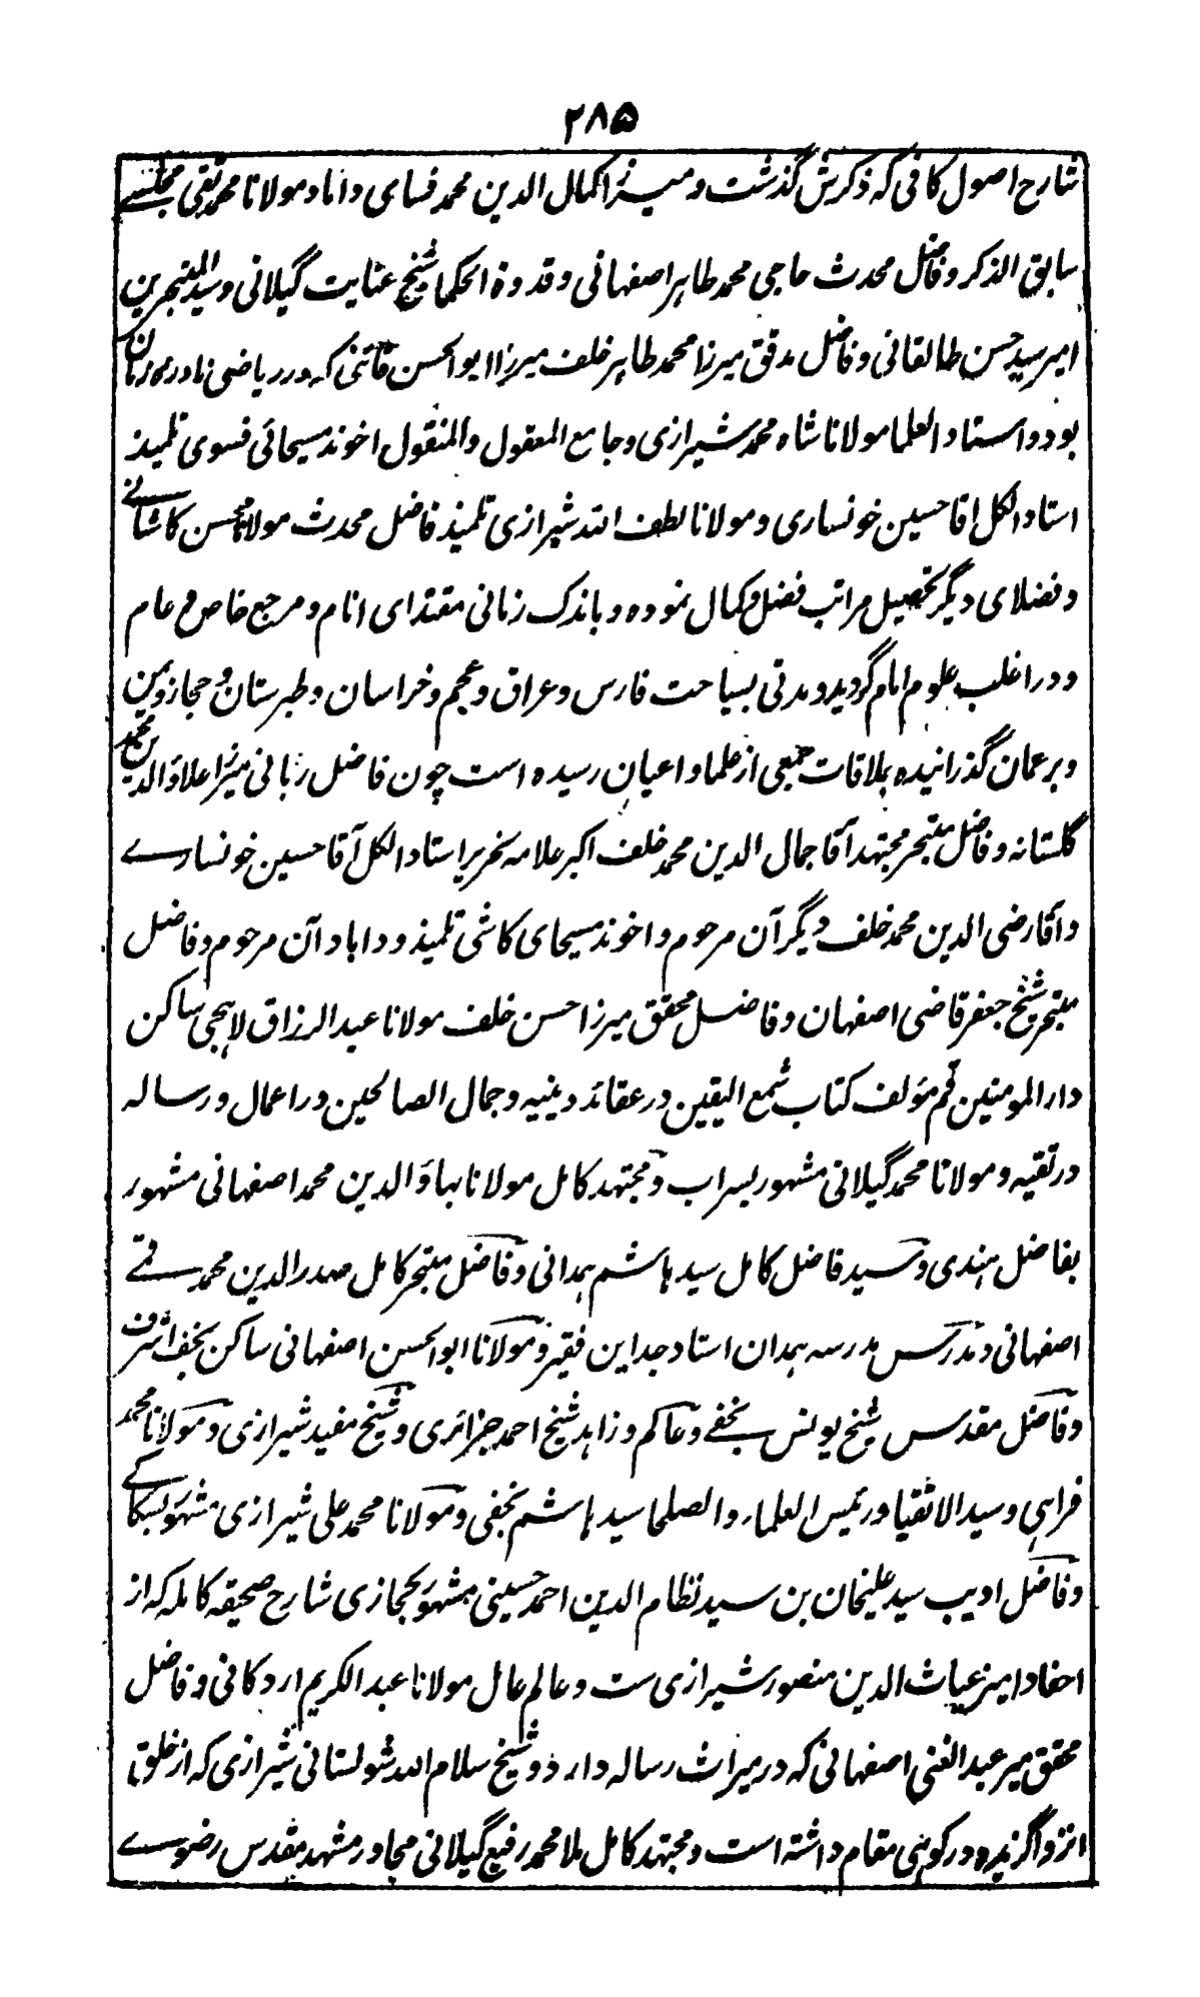 ۲۸۵
شارح اصول کافی که ذکرش گذشت و میرزا کمال الدین محمد فسای داناد و مولانا محمد تقی مجلسے
سابق الذکر و فاضل محدث حاجی محمد طاهر اصفهانی و قدوة الحکما شیخ عنایت گیلانی و سید المتبحرین
امیر سید حسن طالقانی و فاضل مدقق میرزا محمد طاهر خلف میرزا ابوالحسن قائنی که در ریاضی نادره زمان
بود و استاد العلما مولانا شاه محمد شیرازی و جامع المعقول والمنقول اخوند مسیحائی فسوی تلمیذ
استاد الکل اقا حسین خونساری و مولانا لطف الله شیرازی تلمیذ فاضل محدث مولانا محسن کاشانے
و فضلای دیگر تحصیل مراتب فضل و کمال نموده و باندک زمانی مقتدای انام و مرجع خاص و عام
و در اغلب علوم امام گردید و مدتی بسیاحت فارس و عراق و عجم و خراسان و طبرستان و حجاز و یمن
و بر عمان گذرانیده بملاقات جمعی از علما و اعیان رسیده است چون فاضل ربانی میرزا علاؤ الدین محمد
گلستانه و فاضل متبحر مجتهد آقا جمال الدین محمد خلف اکبر علامه نحریر استاد الکل آقا حسین خونسارے
و آقا رضی الدین محمد خلف دیگر آن مرحوم و اخوند مسیحای کاشی تلمیذ و داماد آن مرحوم و فاضل
متبحر شیخ جعفر قاضی اصفهان و فاضل محقق میرزا حسن خلف مولانا عبد الرزاق لاهجی ساکن
دار المومنین قم مؤلف کتاب شمع الیقین در عقائد دینیه و جمال الصالحین در اعمال و رساله
در تقیه و مولانا محمد گیلانی مشهور بسراب و مجتهد کامل مولانا بهاؤ الدین محمد اصفهانی مشهور
بفاضل هندی و سید فاضل کامل سید هاشم همدانی و فاضل متبحر کامل صدر الدین محمد قتے
اصفهانی و مدرس مدرسه همدان استاد جد این فقیر و مولانا ابوالحسن اصفهانی ساکن نجف اشرف
و فاضل مقدس شیخ یونس نجفے و عاکم و زاهد شیخ احمد جزائری و شیخ مفید شیرازی و مولانا محمد
فراهی و سید الاتقیا و رئیس العلماء والصلحا سید هاشم نجفی و مولانا محمد علی شیرازی مشهور بسکاکے
و فاضل ادیب سید علیخان بن سید نظام الدین احمد حسینی مشهور بحجازی شارح صحیفه کامله که از
احفاد امیر غیاث الدین منصور شیرازی ست و عالم عامل مولانا عبد الکریم اردکانی و فاضل
محقق میر عبد الغنی اصفهانی که در میراث رساله دارد و شیخ سلام الله شولستانی شیرازی که از خلوق
انزوا گزیده در کوهی مقام داشته است و مجتهد کامل ملا محمد رفیع گیلانی مجاور مشهد مقدس رضوے